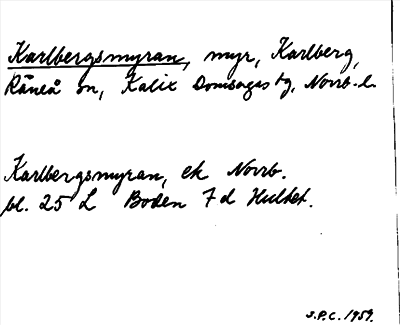 Karlbergsmyran, myr, Karlberg,
Råneå sn, Kalix Domsagas tg, Norrb. l.
Karlbergsmyran, ek Norrb.
bl. 25 L Boden 7 d Hultet.
S.P.C. 1959.